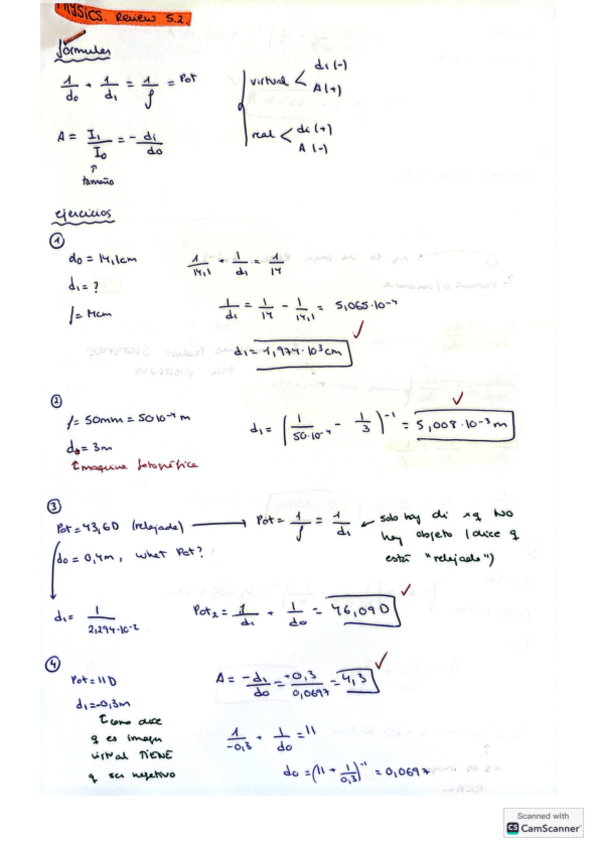 PHYSICS. Review 5.2.
fórmulas
1/do + 1/di = 1/f = Pot
virtual < di (-) A (+)
real < di (+) A (-)
A = I₁/I₀ = - di/do
↑
tamaño
ejercicios
①
do = 14,1cm
di = ?
f = 14cm
1/14,1 + 1/di = 1/14
1/di = 1/14 - 1/14,1 = 5,065·10⁻⁴
di = 1,974·10³cm
②
f = 50mm = 50·10⁻⁴ m
do = 3m
↑ maquina fotográfica
di = (1/50·10⁻⁴ - 1/3)⁻¹ = 5,008·10⁻³ m
③
Pot = 43,6D (relajado) → Pot = 1/f = 1/di
solo hay di xq NO
hay objeto (dice q
está "relajado")
do = 0,4m, what Pot?
di = 1/2,294·10⁻²
Pot₂ = 1/di + 1/do = 46,09D
④
Pot = 11D
di = -0,3m
↑ como dice
q es imagen
virtual TIENE
q ser negativo
A = -di/do = +0,3/0,0697 = 4,3
1/-0,3 + 1/do = 11
do = (11 + 1/0,3)⁻¹ = 0,0697
Scanned with
CS CamScanner